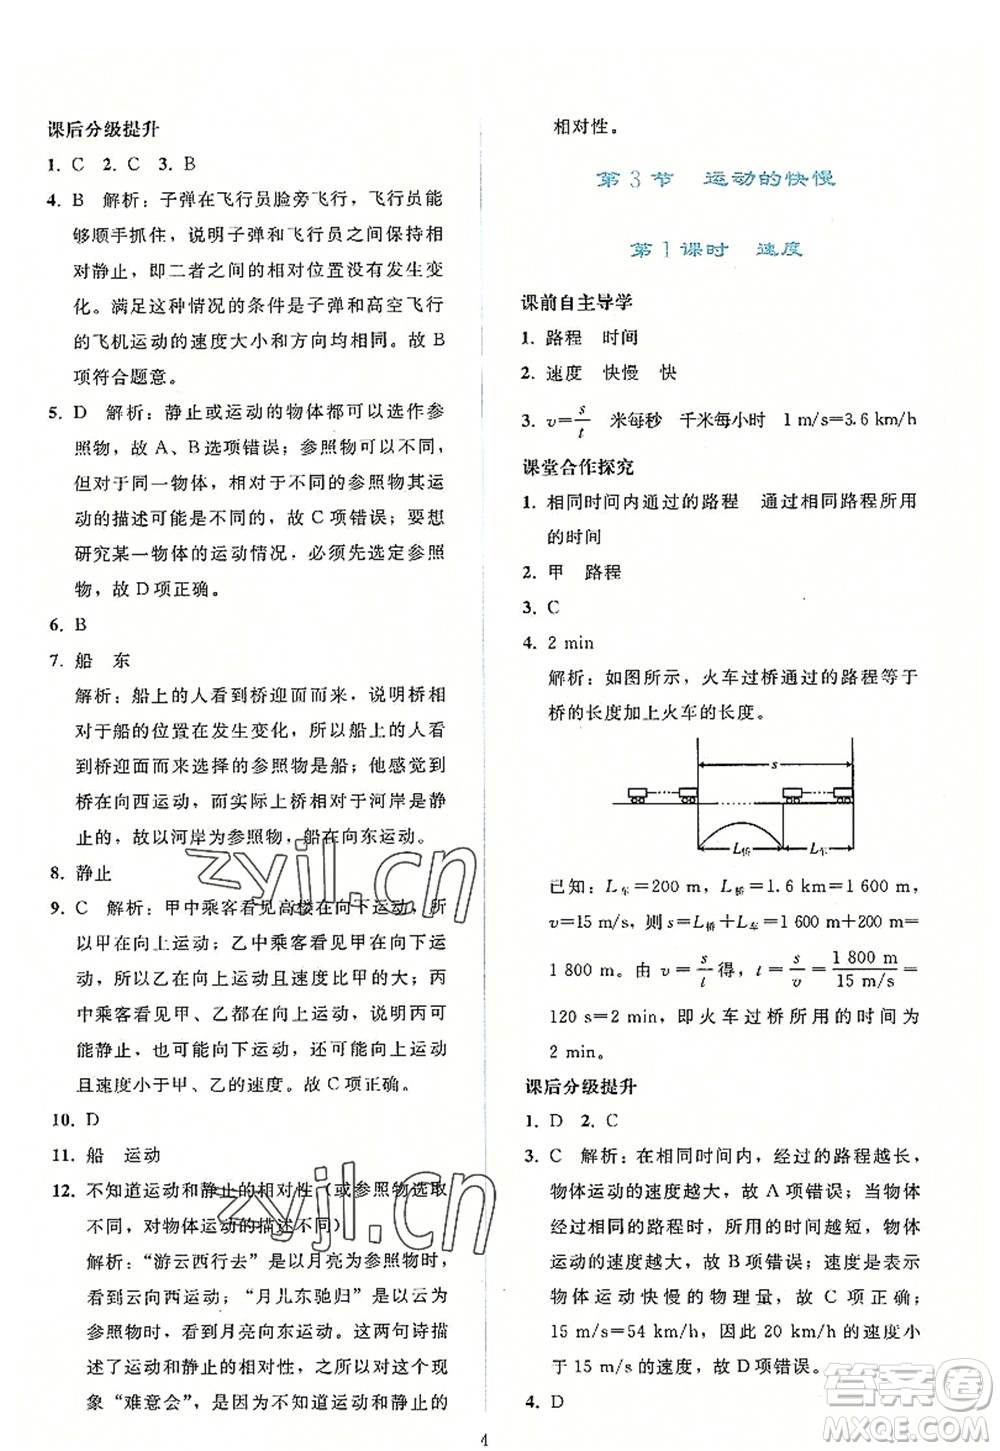 课后分级提升
1. C  2. C  3. B
4. B  解析：子弹在飞行员脸旁飞行，飞行员能
够顺手抓住，说明子弹和飞行员之间保持相
对静止，即二者之间的相对位置没有发生变
化。满足这种情况的条件是子弹和高空飞行
的飞机运动的速度大小和方向均相同。故 B
项符合题意。
5. D  解析：静止或运动的物体都可以选作参
照物，故 A、B 选项错误；参照物可以不同，
但对于同一物体，相对于不同的参照物其运
动的描述可能是不同的，故 C 项错误；要想
研究某一物体的运动情况，必须先选定参照
物，故 D 项正确。
6. B
7. 船  东
解析：船上的人看到桥迎面而来，说明桥相
对于船的位置在发生变化，所以船上的人看
到桥迎面而来的参照物是船；他感觉到
桥在向西运动，而实际上桥相对于河岸是静
止的，故以河岸为参照物，船在向东运动。
8. 静止
9. C  解析：甲中乘客看见高楼在向下运动，所
以甲在向上运动；乙中乘客看见甲在向下运
动，则乙在向上运动且速度比甲的大；丙
中乘客看到甲、乙都在向上运动，说明丙可
能静止，也可能在向下运动，还可能在向上运动
且速度小于甲、乙的速度。故 C 项正确。
10. D
11. 船  运动
12. 不知道运动和静止的相对性（或参照物选取
不同，对物体运动的描述不同）
解析：“游云西行去”是以月亮为参照物，看
到云向西运动；“月儿东驰归”是以云为
参照物时，看到月亮向东运动。这两句诗描
述了运动和静止的相对性，之所以对这一现
象“难意会”，是因为不知道运动和静止的
相对性。
第 3 节  运动的快慢
第 1 课时  速度
课前自主导学
1. 路程  时间
2. 速度  快慢  快
3. v=s/t  米每秒  千米每小时  1 m/s=3.6 km/h
课堂合作探究
1. 相同时间内通过的路程  通过相同路程所用
的时间
2. 甲  路程
3. C
4. 2 min
解析：如图所示，火车过桥通过的路程等于
桥的长度加上火车的长度。
s
L桥  L车
已知：L车=200 m，L桥=1.6 km=1 600 m，
v=15 m/s，则 s=L桥+L车=1 600 m+200 m=
1 800 m。由 v=s/t得，t=s/v=1 800 m/15 m/s=
120 s=2 min，即火车过桥所用的时间为
2 min。
课后分级提升
1. D  2. C
3. C  解析：在相同时间内，经过的路程越长，
物体运动的速度越大，故 A 项错误；当物体
经过相同的路程时，所用的时间越短，物体
运动的速度越大，故 B 项错误；速度是表示
物体运动快慢的物理量，故 C 项正确；
15 m/s=54 km/h，因此 20 km/h 的速度小
于 15 m/s 的速度，故 D 项错误。
4. D
4
zyjl.cn
zyjl.cn
答案圈
MXQE.COM